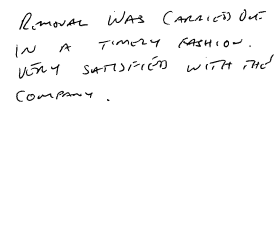 REMOVAL WAS CARRIED OUT
IN A TIMELY FASHION.
VERY SATISFIED WITH THE
COMPANY.